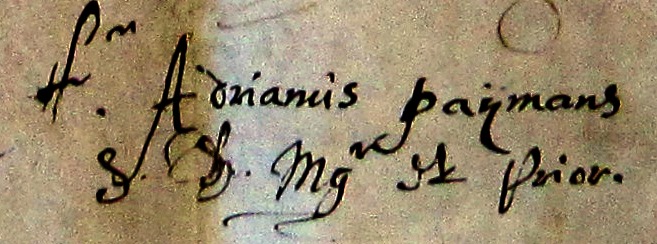 fr. Adrianus paÿmans
S. Th. Mgr et prior.